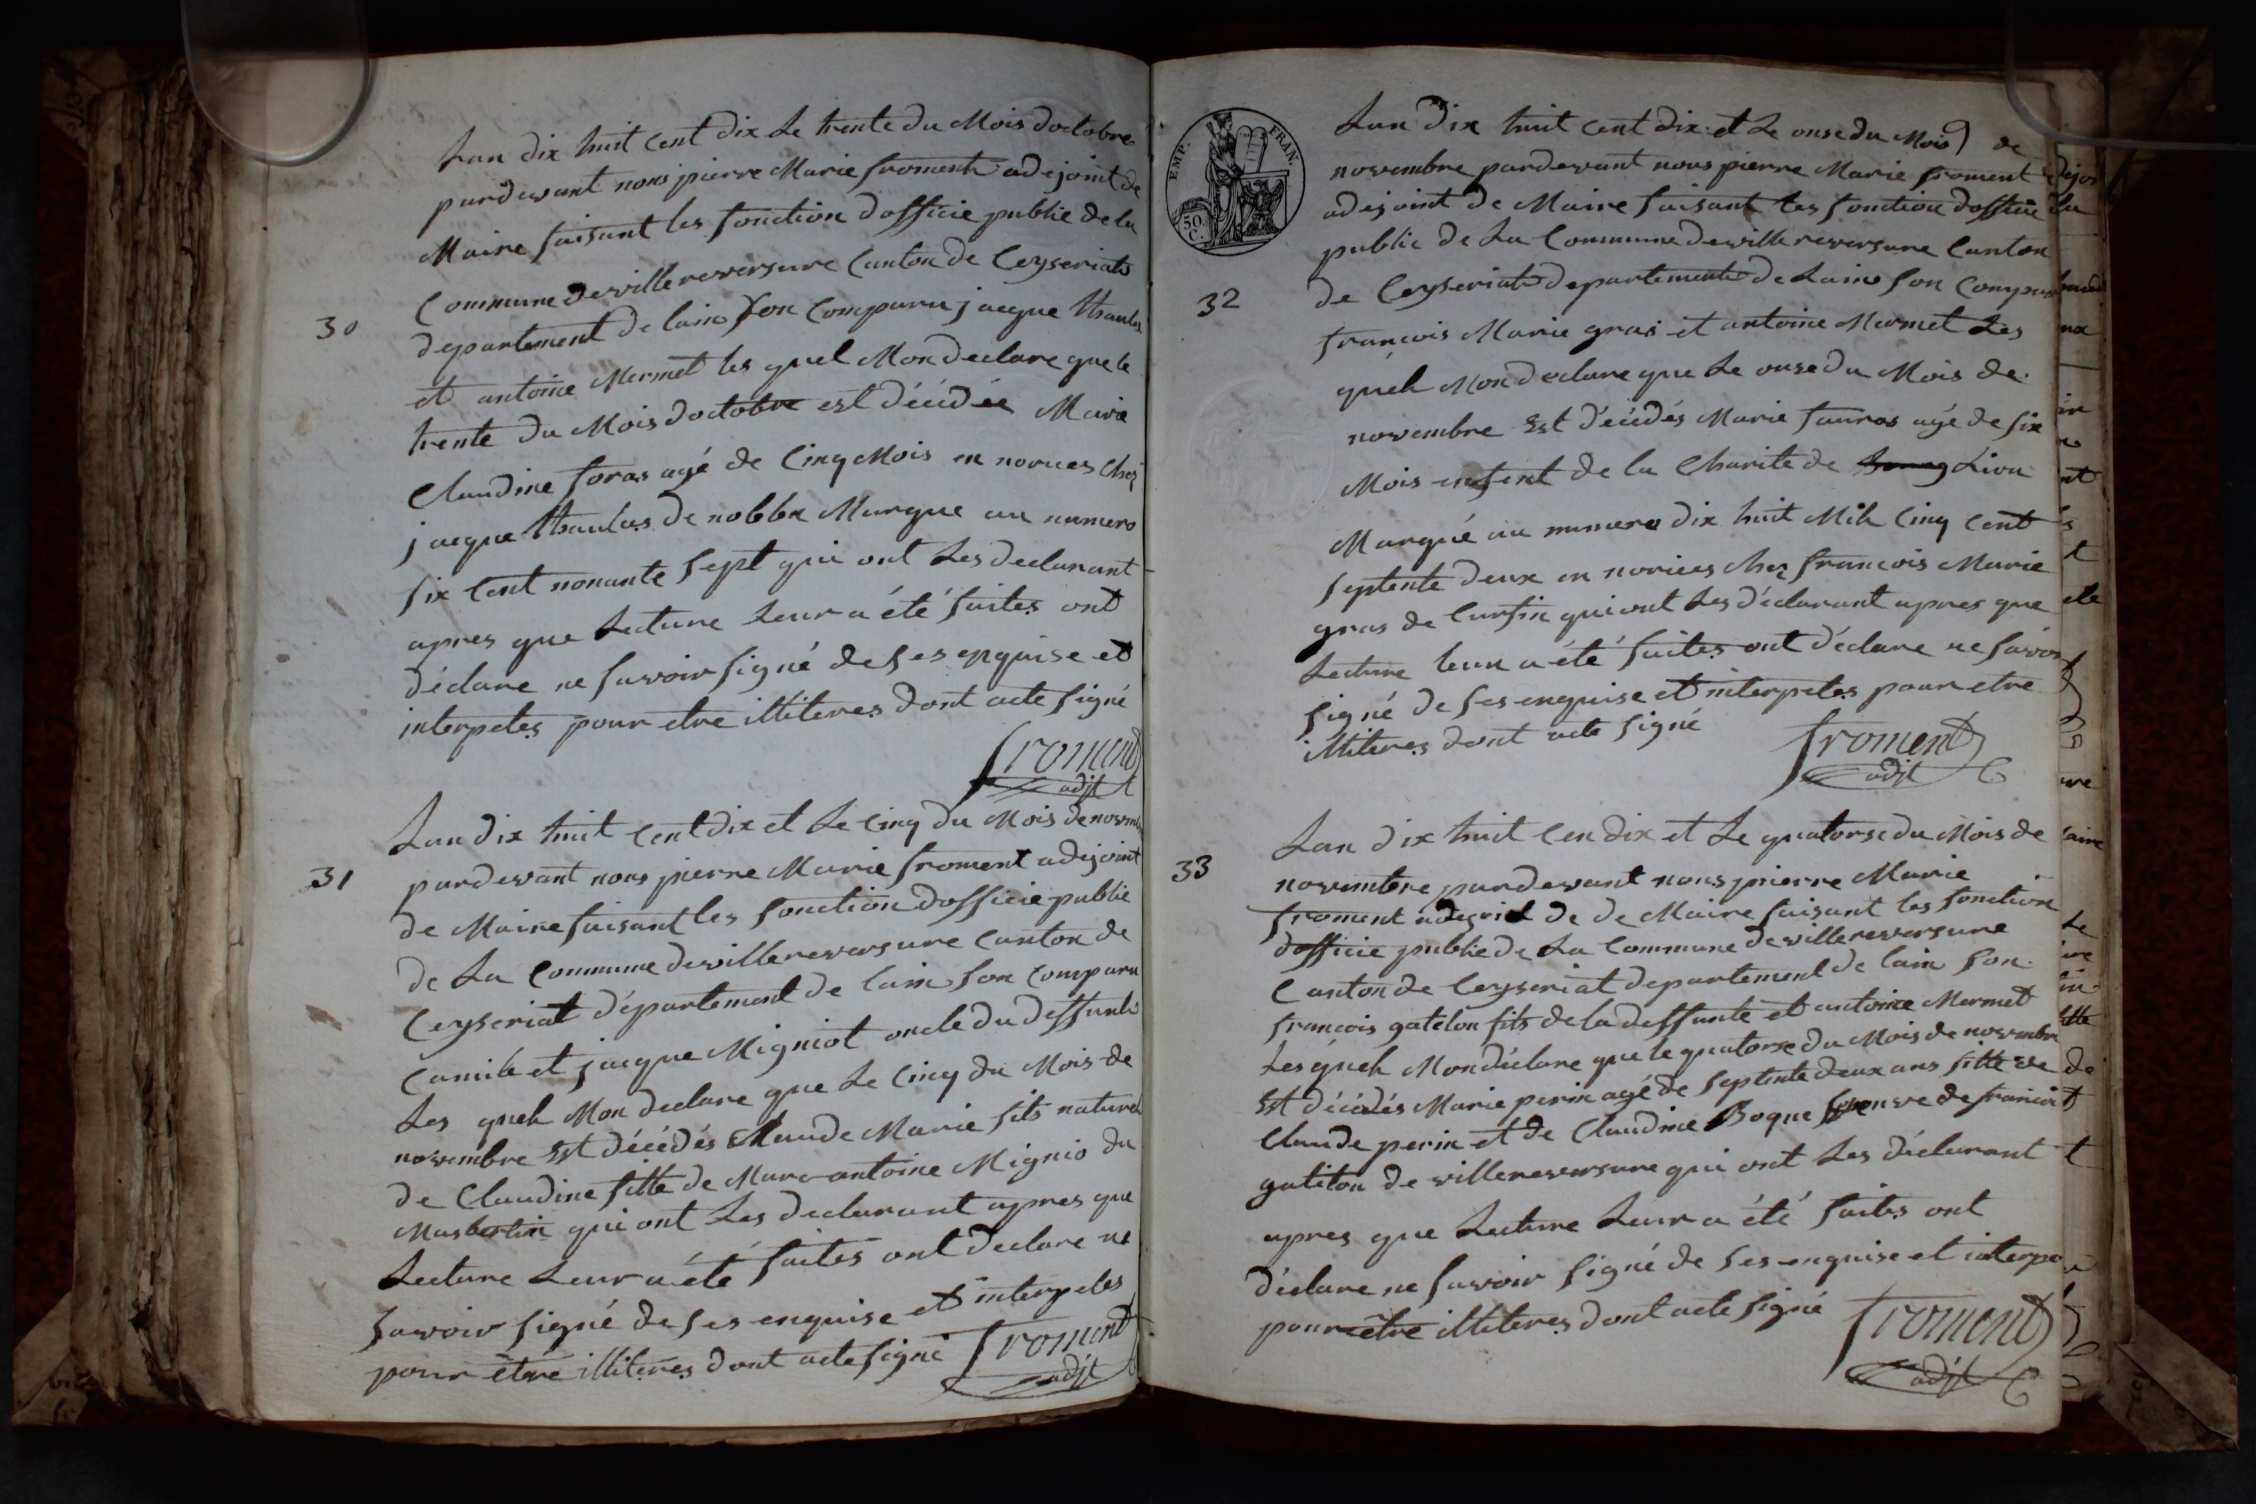 Lan dix huit Cent dix Le trente du Mois doctobre
pardevant nous pierre Marie froment adejoint de
Maire faisant les fonction dofficie public de la
Commune devillereversure Canton de Ceyseriat
30
departement de lain Son Comparu jacque thaulas
et antoine Mermet les quel Mon declare que le
trente du Mois doctobre est décédée Marie
Claudine foras agé de Cinq Mois en norices chez
jacque thaulas de nobbn Marque au numero
six Cent nonante sept qui ont Les declarant
apres que Lecture Leur a été faites ont
déclare ne savoir signé de ses enquise et
interpetes pour etre illiteres dont acte signé
froment
adjt
Lan dix huit Cent dix et Le Cinq du Mois de novembre
31
pardevant nous pierre Marie froment adejoint
de Maire faisant les fonction dofficie public
de La Commune devillereversure Canton de
Ceyseriat département de lain Son Comparu
Camile et jacque Migniot oncle du deffunt
Les queh Mon declare que Le Cinq du Mois de
novembre Est décédés Claude Marie fils naturel
de Claudine fille de Marc antoine Mignio du
Masbertin qui ont Les declarant apres que
Lecture Leur a été faites ont declare ne
savoir signé de ses enquise et interpetes
pour être illiteres dont acte signé
froment
adjt
EMP. FRAN.
50 C.
Lan dix huit Cent dix et Le onse du Mois de
novembre pardevant nous pierre Marie froment
adejoint de Maire faisant les fonction dofficie
public de La Commune devillereversure Canton
32
de Ceyseriat departement de Lain Son Comparu
francois Marie gras et antoine Mermet Les
queh Mon declare que Le onse du Mois de
novembre Est décédés Marie fauras agé de six
Mois enfent de la Charite de Bourg Lion
Marqué au numero dix huit Mih Cinq Cent
septente deux en norices chez francois Marie
gras de Curfin qui ont Les déclarant apres que
Lecture leur a été faites ont déclare ne savoir
signé de ses enquise et interpetes pour etre
illiteres dont acte signé
froment
adjt
Lan dix huit Cen dix et Le quatorse du Mois de
33
novembre pardevant nous pierre Marie
froment adejoint de de Maire faisant les fonction
dofficie public de La Commune devillereversure
Canton de Ceyseriat departement de lain Son
francois gatelon fils de la deffunte et antoine Mermet
Les queh Mon déclare que le quatorse du Mois de novembre
Est décédés Marie perin agé de septente deux ans fille de
Claude perin et de Claudine Boque veuve de francois
gatiton de villereversure qui ont Les déclarant
apres que Lecture Leur a été faites ont
déclare ne savoir signé de ses enquise et interpe
pour être illiteres dont acte signé
froment
adjt